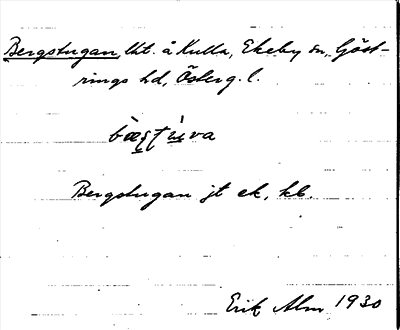 Bergstugan, lht. å Kulla, Ekeby sn, Göst-
rings hd, Österg. l.
Bergstugan jt ek, kb.
Erik Alm 1930